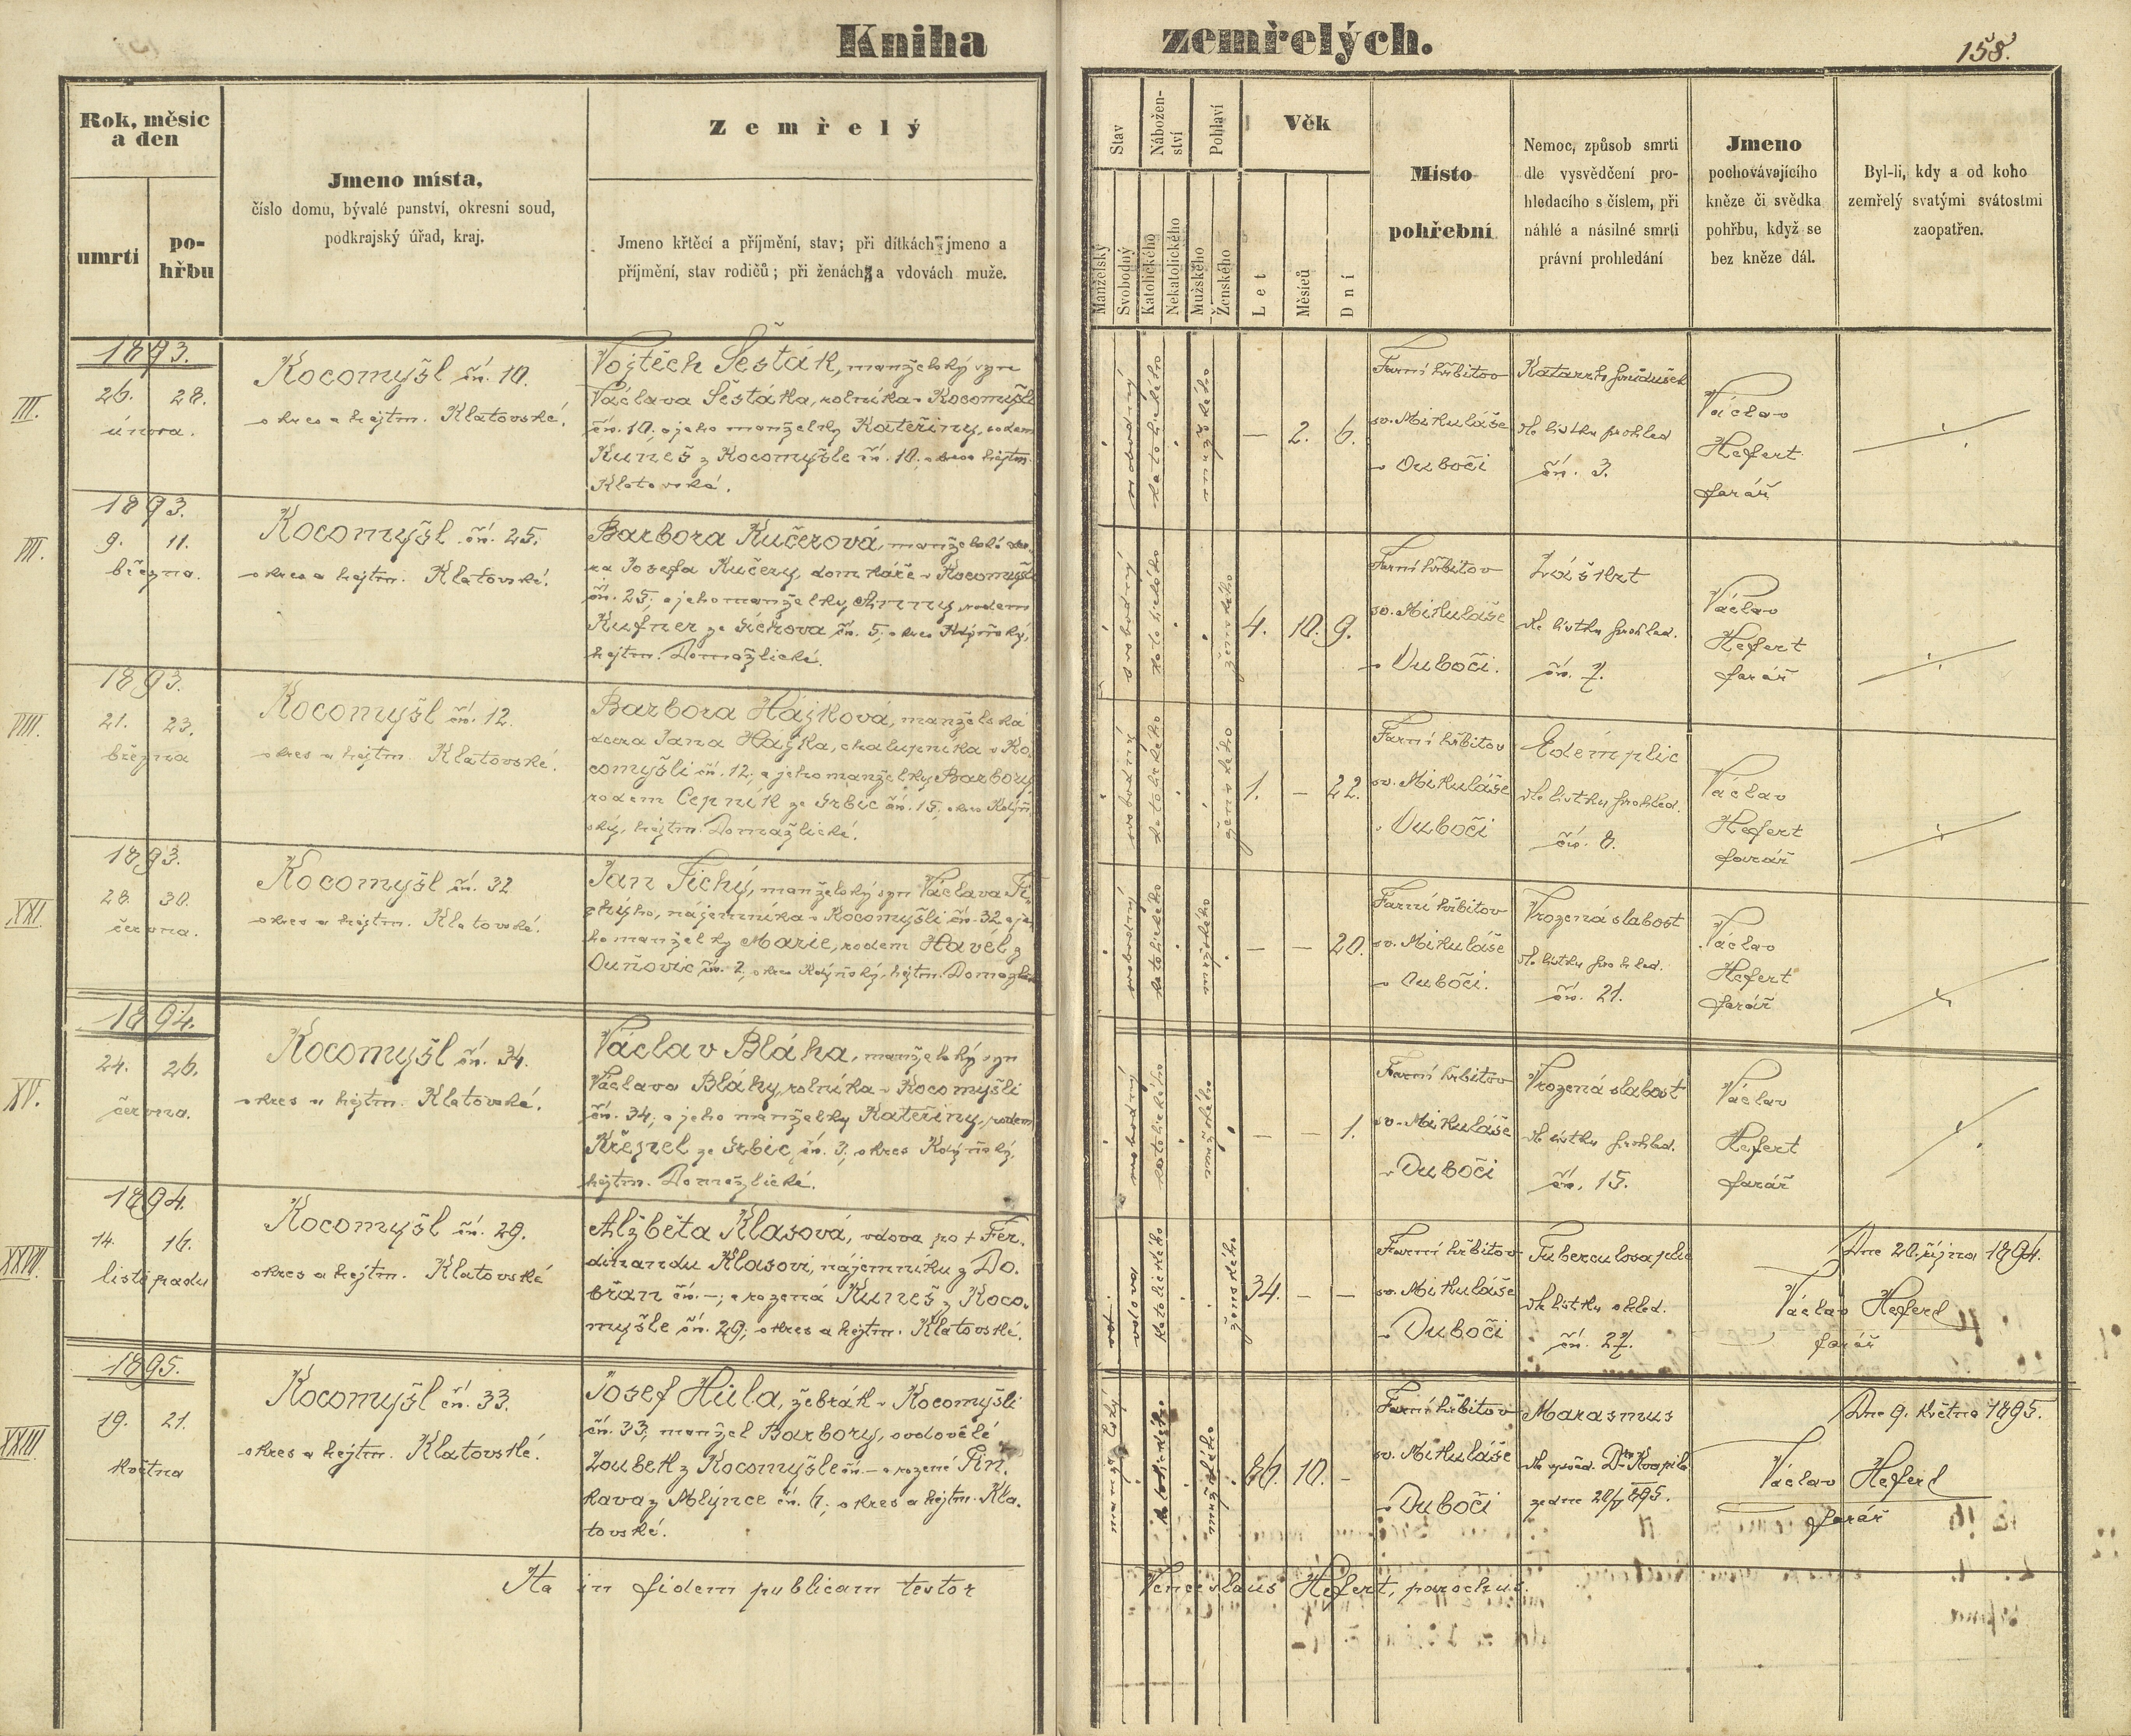 Kniha zemřelých.
158.
Rok, měsíc
a den
umrtí
po-
hřbu
Jmeno místa,
číslo domu, bývalé panství, okresní soud,
podkrajský úřad, kraj.
Zemřelý
Jmeno křtěcí a příjmění, stav; při dítkách jmeno a
příjmění, stav rodičů; při ženách a vdovách muže.
Stav
Manželský
Svobodný
Nábožen-
ství
Katolického
Nekatolického
Pohlaví
Mužského
Ženského
Věk
Let
Měsíců
Dní
Místo
pohřební
Nemoc, způsob smrti
dle vysvědčení pro-
hledacího s číslem, při
náhlé a násilné smrti
právní prohledání
Jmeno
pochovávajícího
kněze či svědka
pohřbu, když se
bez kněze dál.
Byl-li, kdy a od koho
zemřelý svatými svátostmi
zaopatřen.
III.
1893.
26. 28.
února.
Kocomyšl čn. 10.
okres a hejtm. Klatovské.
Vojtěch Šesták, manželský syn
Václava Šestáka, rolníka v Kocomyšli
čn. 10; a jeho manželky Kateřiny, rodem
Kuneš z Kocomyšle čn. 10; okres a hejtm.
Klatovské.
svobodný
katolického
mužského
— 2. 6.
Farní hřbitov
sv. Mikuláše
v Ouboči
Katarrh průdušek
dle lístku prohled
čn. 3.
Václav
Hefert
farář
VII.
1893.
9. 11.
března.
Kocomyšl čn. 25.
okres a hejtm. Klatovské.
Barbora Kučerová, manželská dce-
ra Josefa Kučery, domkáře v Kocomyšli
čn. 25; a jeho manželky Anny, rodem
Kufner ze čn. 5; okres Kdýňský,
hejtm. Domažlické.
svobodný
katolického
ženského
4. 10. 9.
Farní hřbitov
sv. Mikuláše
v Ouboči.
Záškrt
dle lístku prohled.
čn. 7.
Václav
Hefert
farář
VIII.
1893.
21. 23.
března
Kocomyšl čn. 12.
okres a hejtm. Klatovské.
Barbora Hájková, manželská
dcera Jana Hájka, chalupníka v Ko-
comyšli čn. 12; a jeho manželky Barbory
rodem Cepník ze Srbic čn. 15; okres Kdýň-
ský, hejtm. Domažlické.
svobodný
katolického
ženského
1. — 22.
Farní hřbitov
sv. Mikuláše
v Ouboči
dle lístku prohled.
čn. 8.
Václav
Hefert
farář
XXI.
1893.
28. 30.
června.
Kocomyšl čn. 32
okres a hejtm. Klatovské.
Jan Tichý, manželský syn Václava Ti-
chýho, nájemníka v Kocomyšli čn. 32, a je-
ho manželky Marie, rodem Havel z
Ouňovic, čn. 2, okres Kdýňský, hejtm.
svobodný
katolického
mužského
— — 20.
Farní hřbitov
sv. Mikuláše
v Ouboči.
Vrozená slabost
dle lístku prohled.
čn. 21.
Václav
Hefert
farář
XV.
1894.
24. 26.
června.
Kocomyšl čn. 34.
okres a hejtm. Klatovské.
Václav Bláha, manželský syn
Václava Bláhy, rolníka v Kocomyšli
čn. 34; a jeho manželky Kateřiny, rodem
Křepel ze Srbic, čn. 3; okres Kdýňský,
hejtm. Domažlické.
svobodný
katolického
mužského
— — 1.
Farní hřbitov
sv. Mikuláše
v Ouboči
Vrozená slabost
dle lístku prohled.
čn. 15.
Václav
Hefert
farář
XXVII.
1894.
14. 16.
listopadu
Kocomyšl čn. 29.
okres a hejtm. Klatovské
Alžběta Klasová, vdova po + Fer-
dinandu Klasovi, nájemníku z Do-
břan čn. —; a rozená Kuneš z Koco-
myšle čn. 29; okres a hejtm. Klatovské.
vdova
katolického
ženského
34. — —
Farní hřbitov
sv. Mikuláše
v Ouboči
dle lístku ohled.
čn. 27.
Dne 20. října 1894.
Václav Hefert
farář
XXIII
1895.
19. 21.
května
Kocomyšl čn. 33.
okres a hejtm. Klatovské.
Josef Hůla, žebrák v Kocomyšli
čn. 33; manžel Barbory, ovdovělé
Zoubek z Kocomyšle čn. — a rozené Pin-
kava z Mlýnce čn. 6; okres a hejtm. Kla-
tovské.
manželský
katolického
mužského
66. 10. —
Farní hřbitov
sv. Mikuláše
v Ouboči
Marasmus
dle vysvěd. Dra Kvapila
ze dne 20/5 895.
Dne 9. května 1895.
Václav Hefert
farář
Ita in fidem publicam testor
Venceslaus Hefert, parochus.